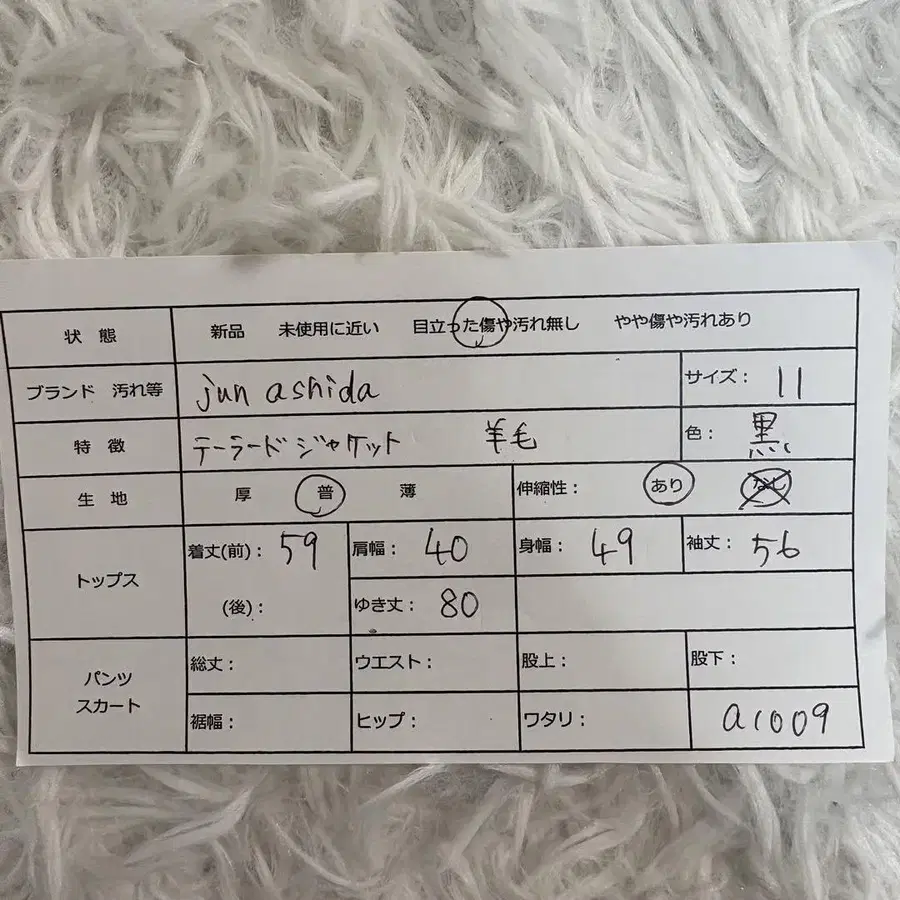 状 態 新品 未使用に近い 目立った傷や汚れ無し やや傷や汚れあり
ブランド 汚れ等 jun ashida サイズ： 11
特 徴 テーラードジャケット 羊毛 色： 黒
生 地 厚 普 薄 伸縮性： あり なし
トップス 着丈(前)： 59 肩幅： 40 身幅： 49 袖丈： 56
(後)： ゆき丈： 80
パンツ スカート 総丈： ウエスト： 股上： 股下：
裾幅： ヒップ： ワタリ： a1009